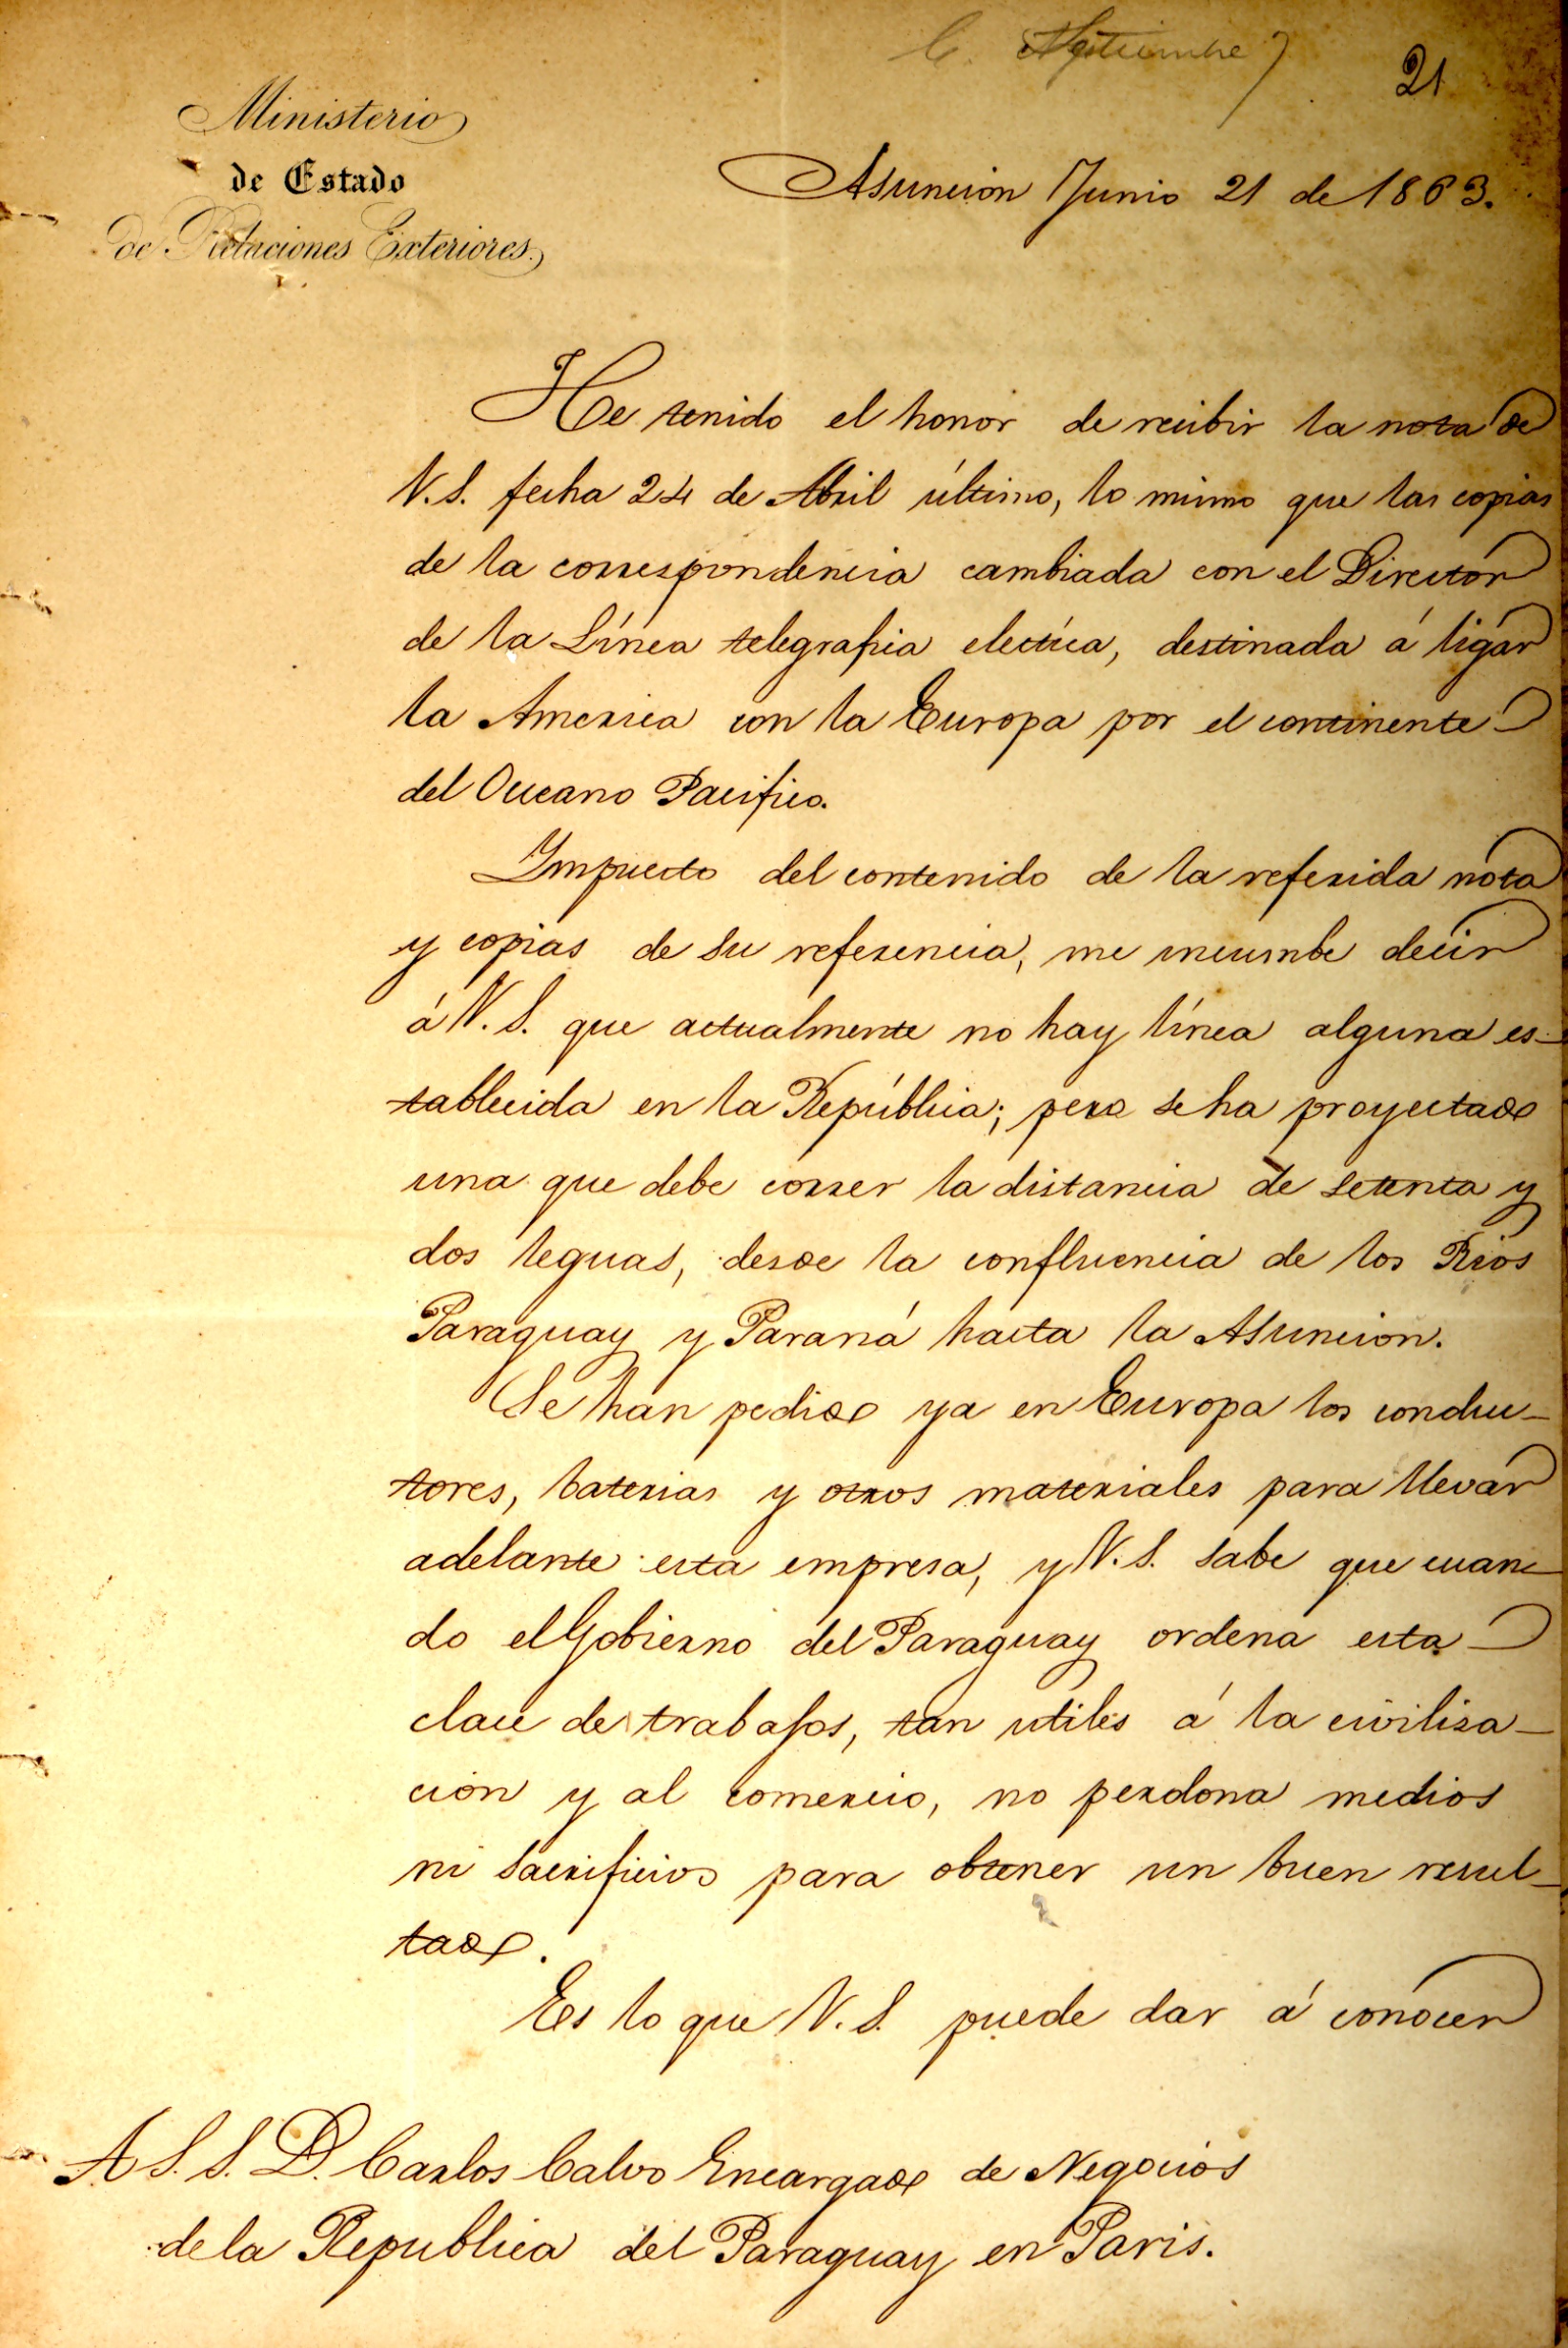 C. Septiembre 7
21
Ministerio
de Estado
de Relaciones Exteriores.
Asuncion Junio 21 de 1863.
He tenido el honor de recibir la nota de
V.S. fecha 24 de Abril último, lo mismo que las copias
de la correspondencia cambiada con el Director
de la Línea telegrafia electrica, destinada á ligar
la America con la Europa por el continente
del Occeano Pacifico.
Impuesto del contenido de la referida nota
y copias de su referencia, me incumbe decir
á V.S. que actualmente no hay línea alguna es-
tablecida en la República; pero se ha proyectado
una que debe correr la distancia de setenta y
dos leguas, desde la confluencia de los Rios
Paraguay y Paraná hasta la Asuncion.
Se han pedido ya en Europa los conduc-
tores, baterias y otros materiales para llevar
adelante esta empresa, y V.S. sabe que cuan-
do el Gobierno del Paraguay ordena esta
clase de trabajos, tan utiles á la civiliza-
cion y al comercio, no perdona medios
ni sacrificios para obtener un buen resul-
tado.
Es lo que V.S. puede dar á conocer
A S.S. D. Carlos Calvo Encargado de Negocios
de la Republica del Paraguay en Paris.